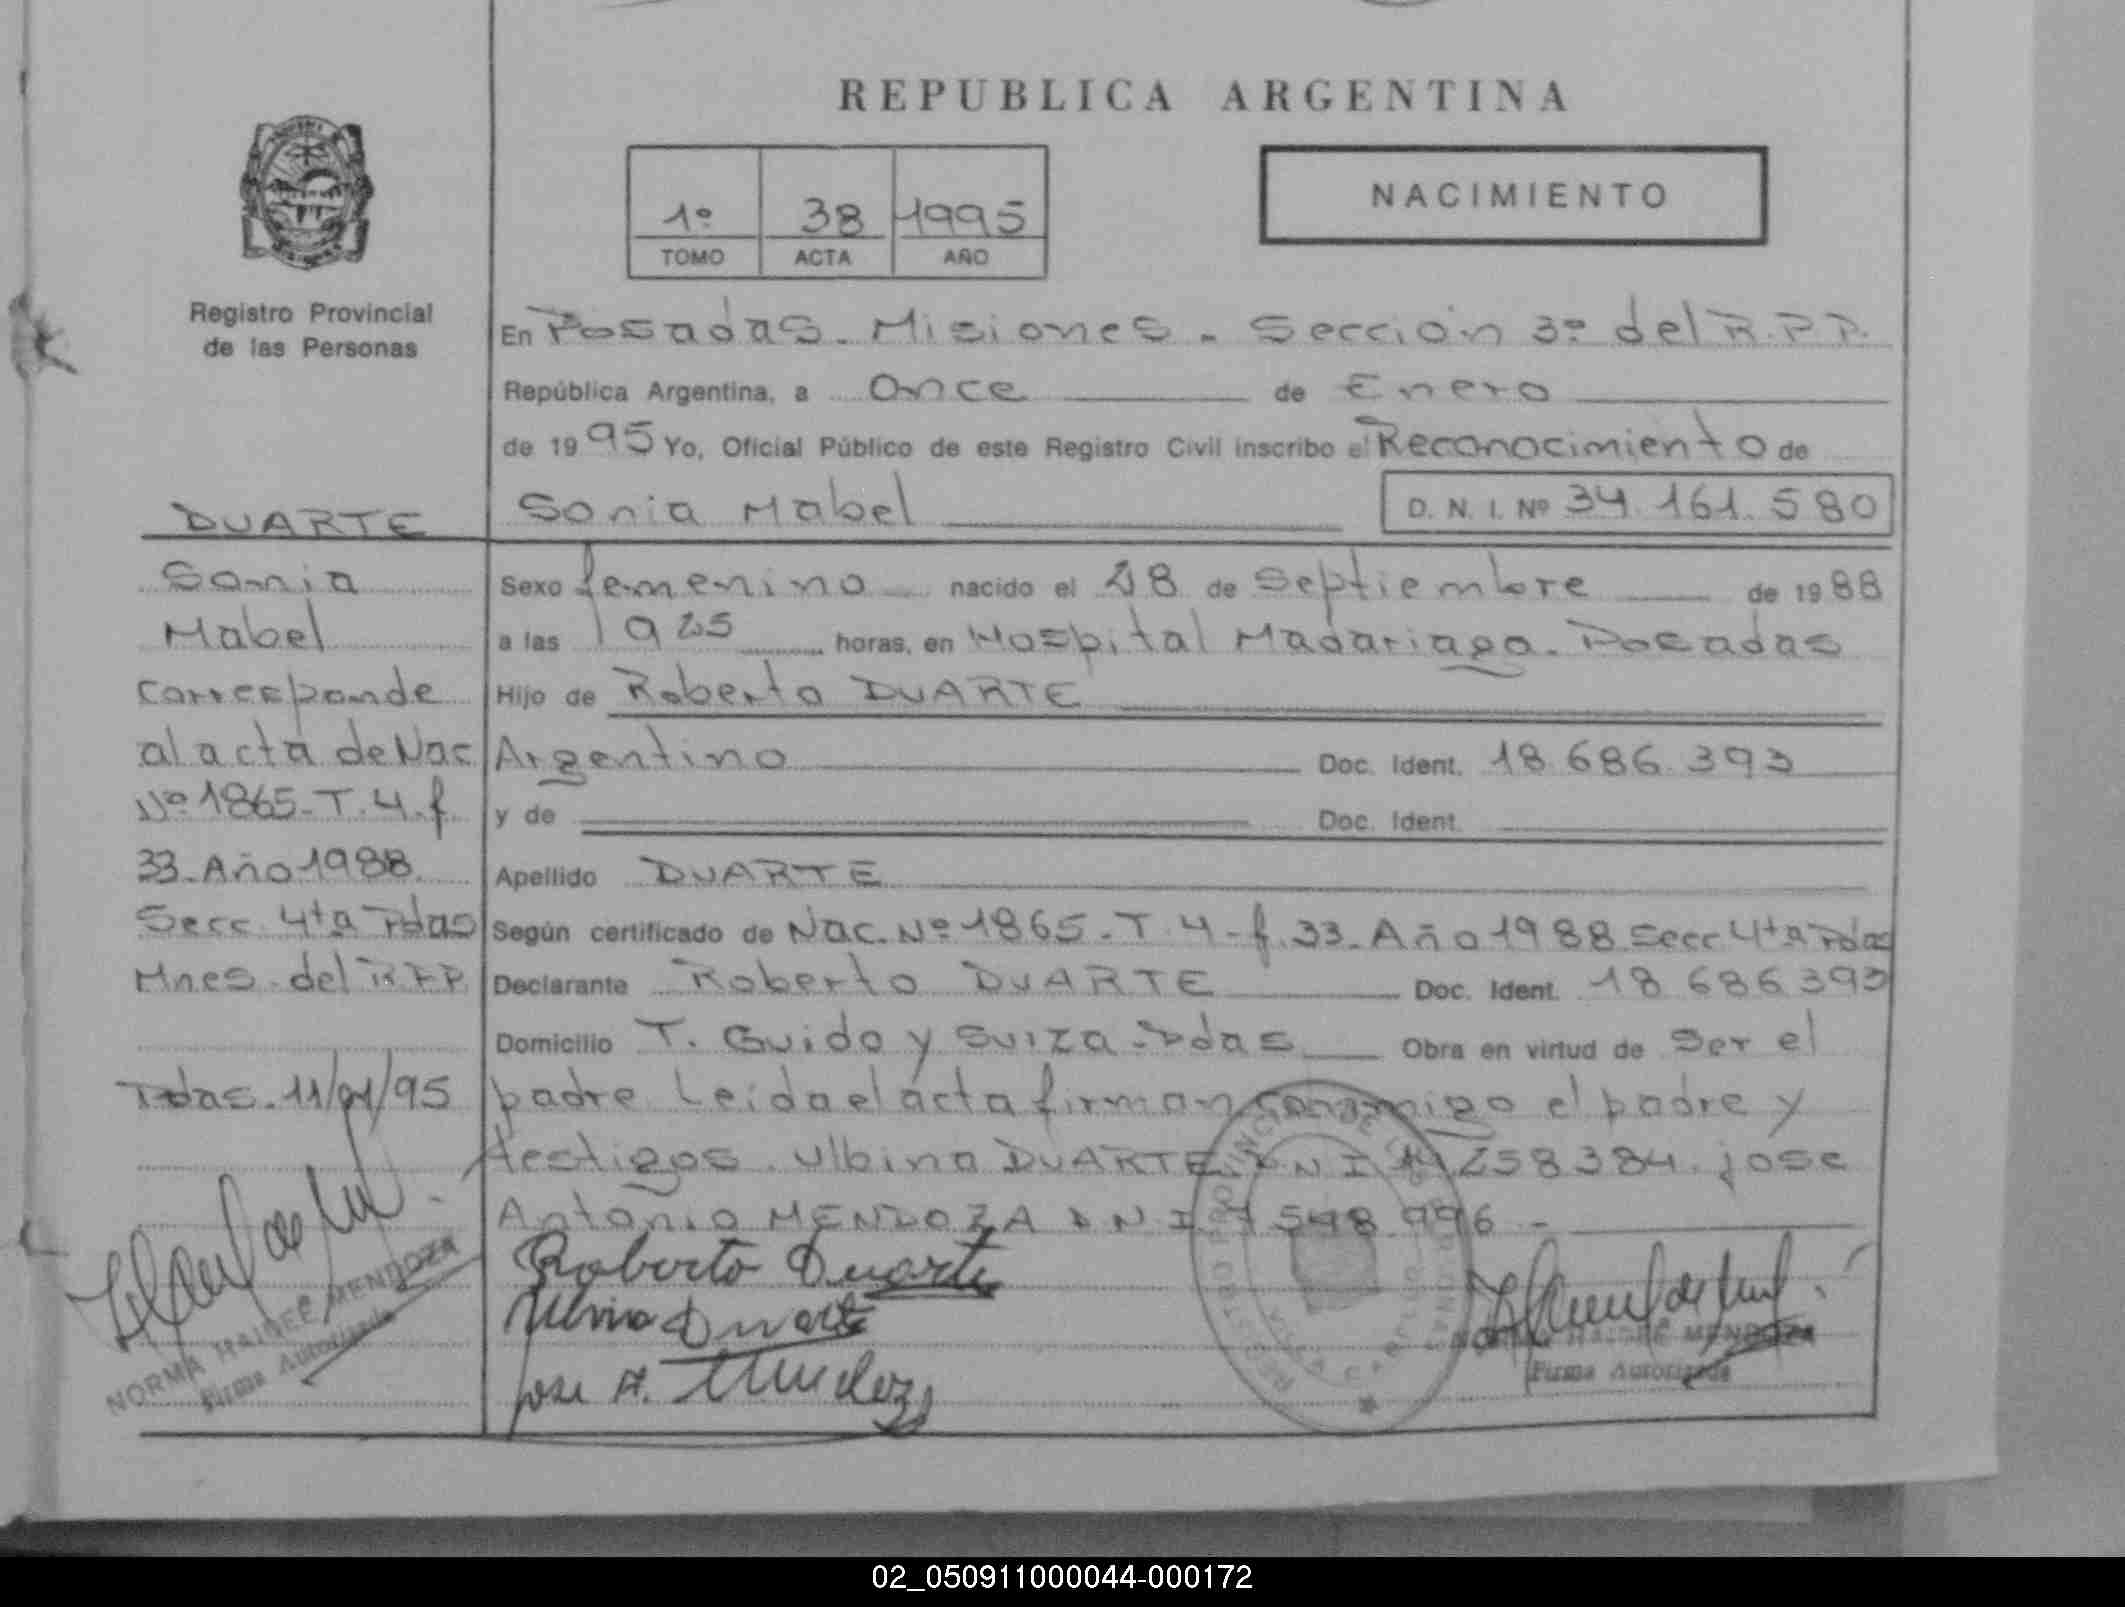 REPUBLICA ARGENTINA
1º 38 1995
TOMO ACTA AÑO
NACIMIENTO
Registro Provincial
de las Personas
En Posadas. Misiones. Sección 3º del R.P.P.
República Argentina, a Once de Enero
de 1995 Yo, Oficial Público de este Registro Civil inscribo el Reconocimiento de
Sonia Mabel D. N. I. Nº 34.161.580
Sexo femenino nacido el 28 de Septiembre de 1988
a las 1925 horas, en Hospital Madariaga. Posadas
Hijo de Roberto DUARTE
Argentino Doc. Ident. 18.686.393
y de Doc. Ident.
Apellido DUARTE
Según certificado de Nac. Nº 1865. T. 4. f. 33. Año 1988 Secc 4ta Pdas
Declarante Roberto DUARTE Doc. Ident. 18 686 393
Domicilio T. Guido y Suiza. Pdas Obra en virtud de Ser el
padre Leida el acta firman conmigo el padre y
testigos. Ulbino DUARTE DNI 258384. jose
Antonio MENDOZA DNI 7 548 996 -
Roberto Duarte
Ulbino Duarte
jose A. Mendoza
NORMA HAIDEE MENDOZA
Firma Autorizada
REGISTRO PROVINCIAL DE LAS PERSONAS
DUARTE
Sonia
Mabel
corresponde
al acta de Nac
Nº 1865. T. 4. f.
33. Año 1988.
Secc. 4ta Pdas
Mnes. del R.P.P.
Pdas. 11/01/95
NORMA HAIDEE MENDOZA
Firma Autorizada
02_050911000044-000172